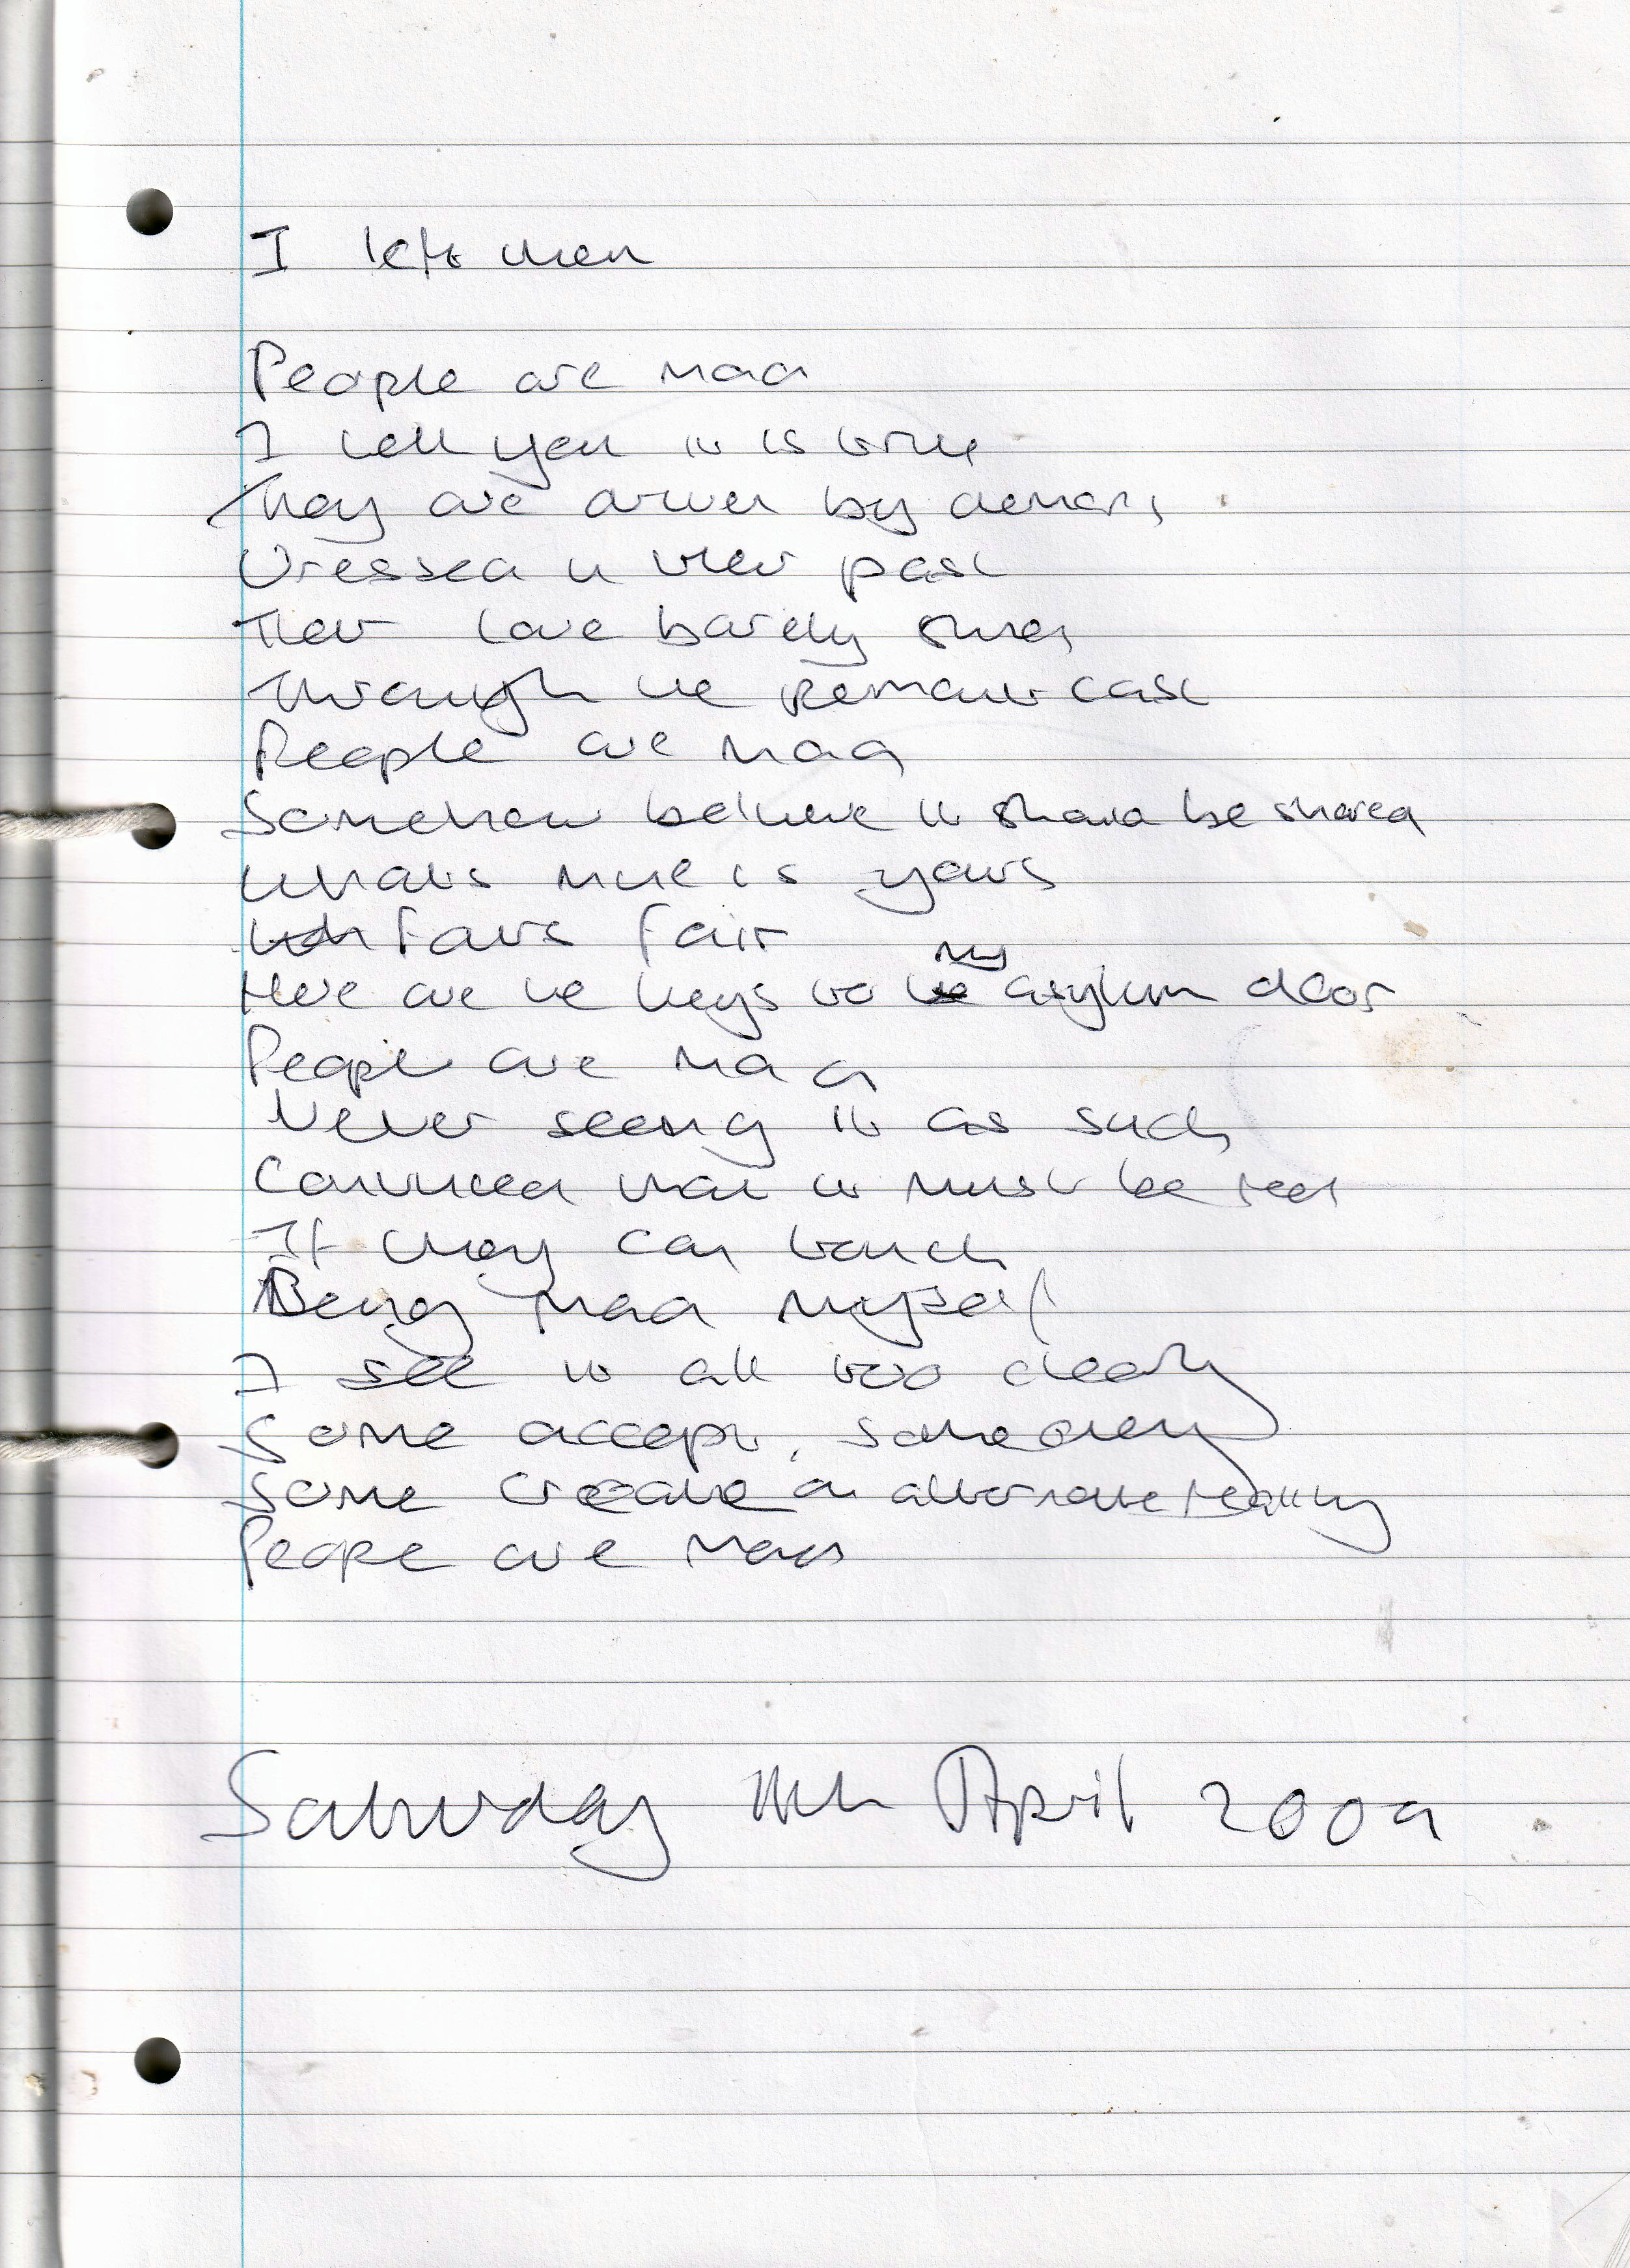 I left then
People are mad
I tell you it is true
They are driven by demons
Dressed in their past
Their love barely shines
Through the remaining cast
People are mad
Somehow believe it should be shared
Whats mine is yours
Fairs fair
Here are the keys to my asylum door
People are mad
Never seeing it as such
Convinced that it must be real
If they can touch
Being mad myself
I see it all too clearly
Some accept, some deny
Some create an alternate reality
People are mad
Saturday 11th April 2009